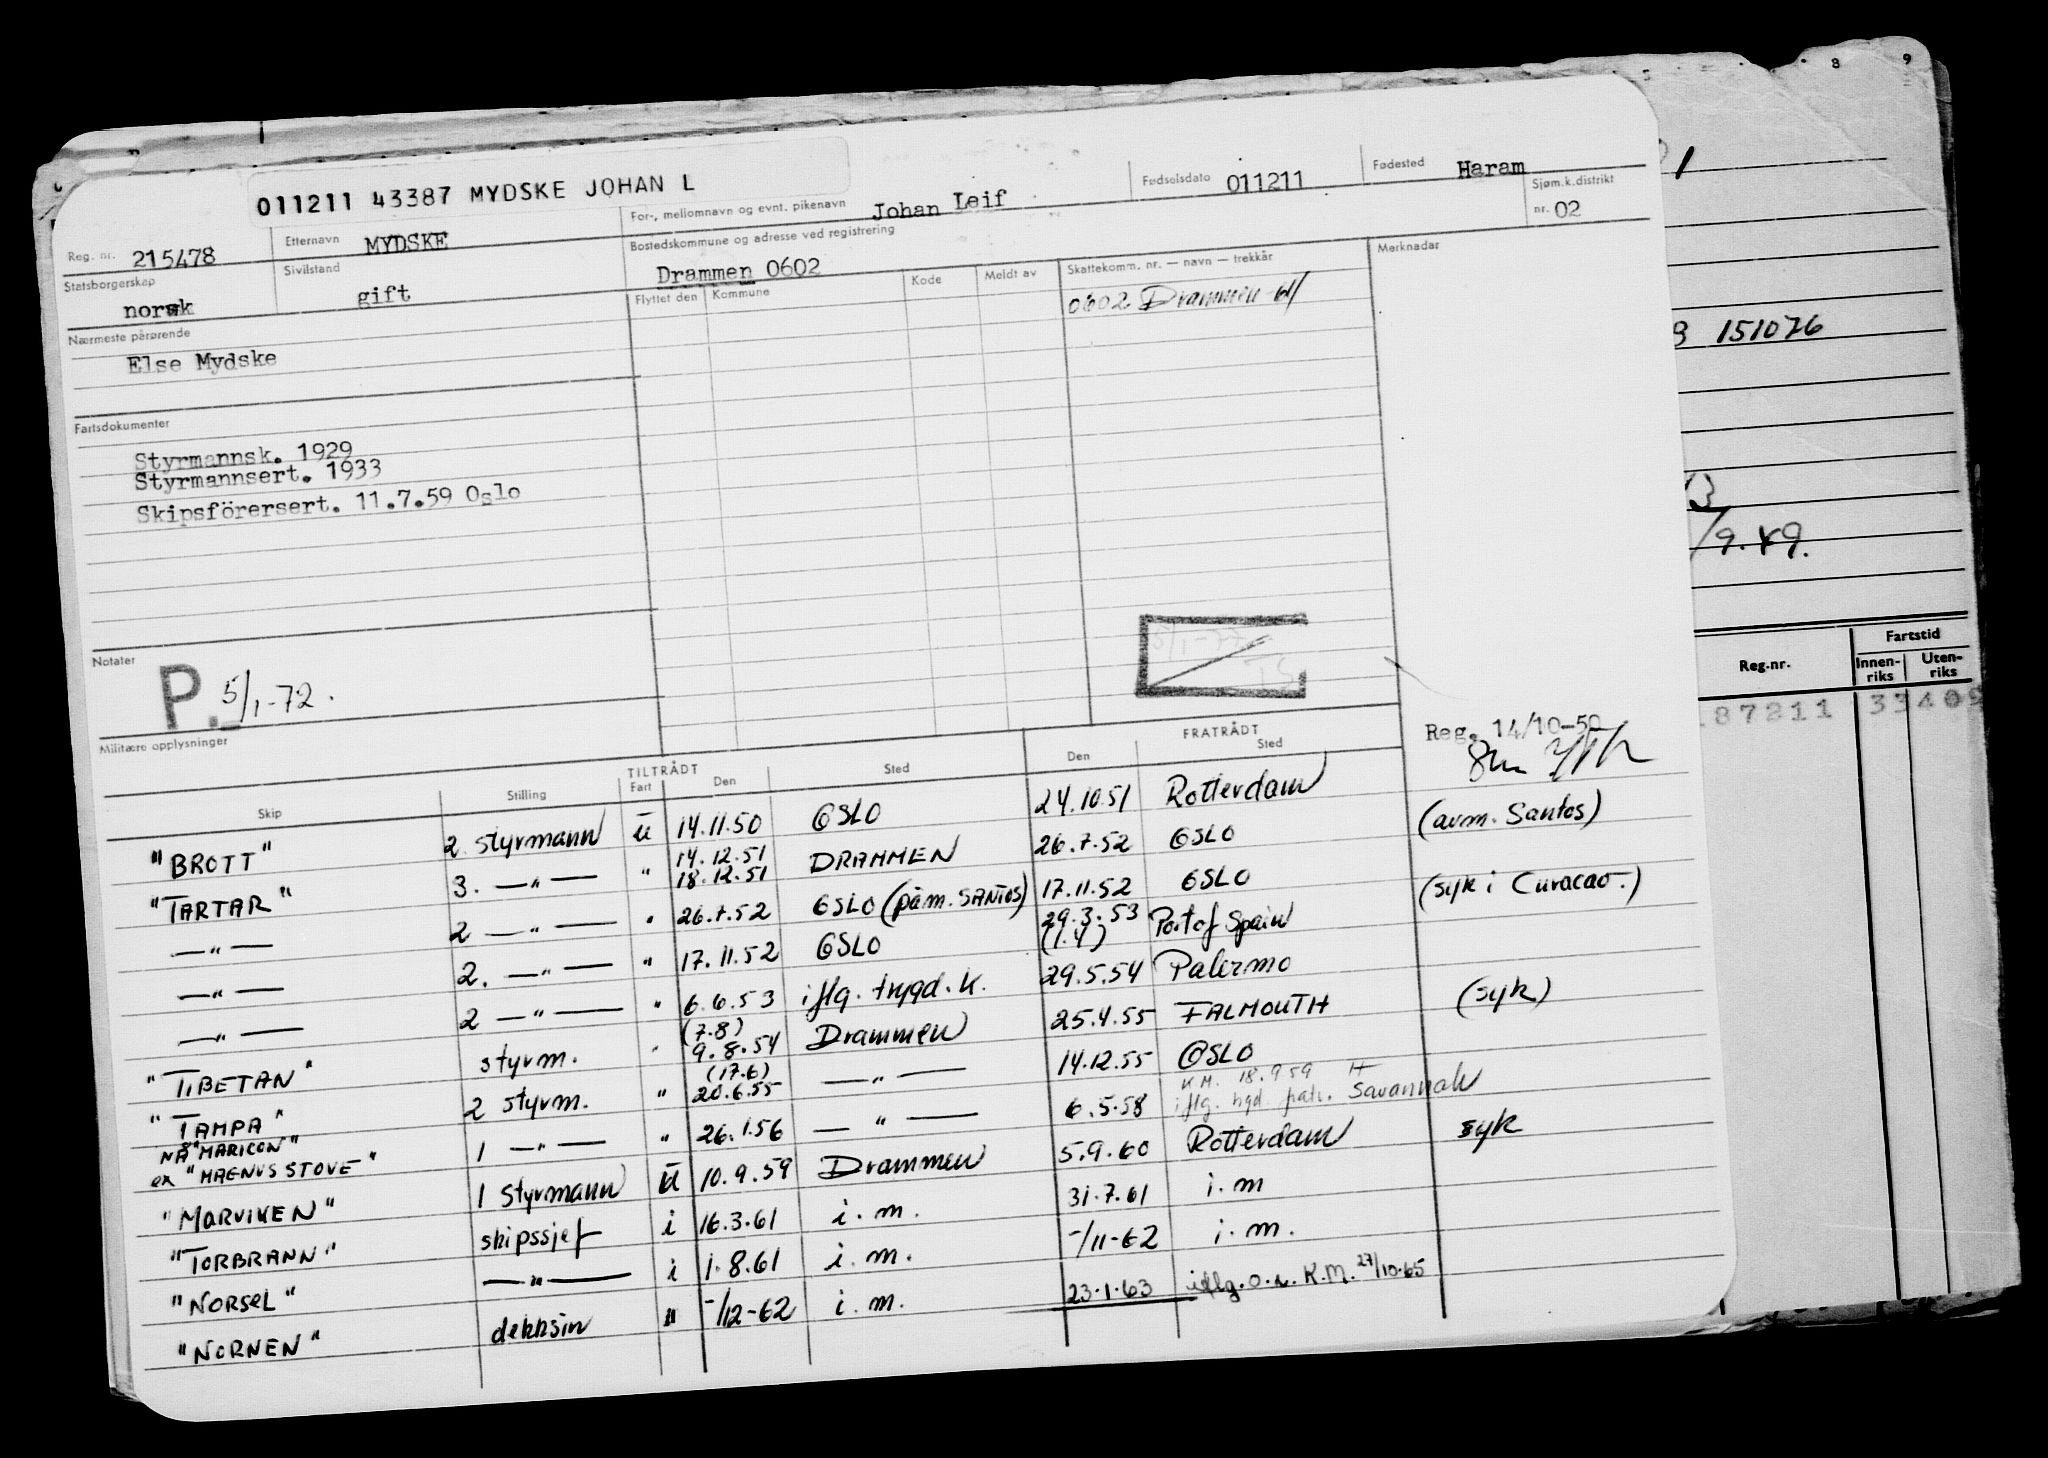 8 9
011211 43387 MYDSKE JOHAN L
Reg. nr. 215478 Etternavn MYDSKE For-, mellomnavn og evnt. pikenavn Johan Leif Fødselsdato 011211 Fødested Haram
Sjøm.k.distrikt nr. 02
Statsborgerskap norsk Sivilstand gift Bostedskommune og adresse ved registrering Drammen 0602
Flyttet den Kommune Kode Meldt av Skattekomm. nr. — navn — trekkår Merknadar
0602 Drammen
Nærmeste pårørende
Else Mydske
151076
Fartsdokumenter
Styrmannsk. 1929
Styrmannsert. 1933
Skipsförersert. 11.7.59 Oslo
/9.49.
Notater
P. 5/1-72.
5/1-72
Militære opplysninger
Reg. 14/10-50
Reg.nr. Fartstid
Innen-riks Uten-riks
87211 33409
TILTRÅDT FRATRÅDT
Skip Stilling Fart Den Sted Den Sted
"BROTT" 2. styrmann u 14.11.50 OSLO 24.10.51 Rotterdam
"TARTAR" 3. —"— " 14.12.51 18.12.51 DRAMMEN 26.7.52 OSLO (avm. Santos)
—"— 2 —"— " 26.7.52 OSLO (påm. SANTOS) 17.11.52 OSLO
—"— 2. —"— " 17.11.52 OSLO 29.3.53 (1.4) Port of Spain (syk i Curacao.)
—"— 2 —"— " 6.6.53 iflg. trygd. k. 29.5.54 Palermo
"TIBETAN" styrm. " (7.8) 9.8.54 Drammen 25.4.55 FALMOUTH (syk)
"TAMPA" 2 styrm. " (17.6) 20.6.55 —"— 14.12.55 OSLO
NÅ "MARICON"
ex "MAGNUS STOVE" 1 —"— " 26.1.56 —"— 6.5.58 K.M. 18.9 59 iflg. Savannah
"MARVIKEN" 1 styrmann u 10.9.59 Drammen 5.9.60 Rotterdam syk
"TORBRANN" skipssjef i 16.3.61 i.m. 31.7.61 i.m
"NORSEL" —"— i 1.8.61 i.m. -/11-62 i.m.
"NORNEN" dekksin " -/12-62 i.m. 23.1.63 iflg. o.s. K.M. 27/10.65